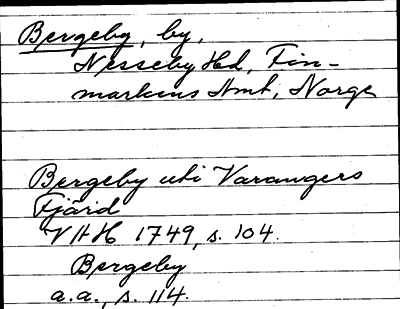 Bergeby, by,
Nesseby Hd, Fin-
markens Amt, Norge
Bergeby uti Varangers
Fjärd
VHH 1749, s. 104.
Bergeby
a.a., s. 114.